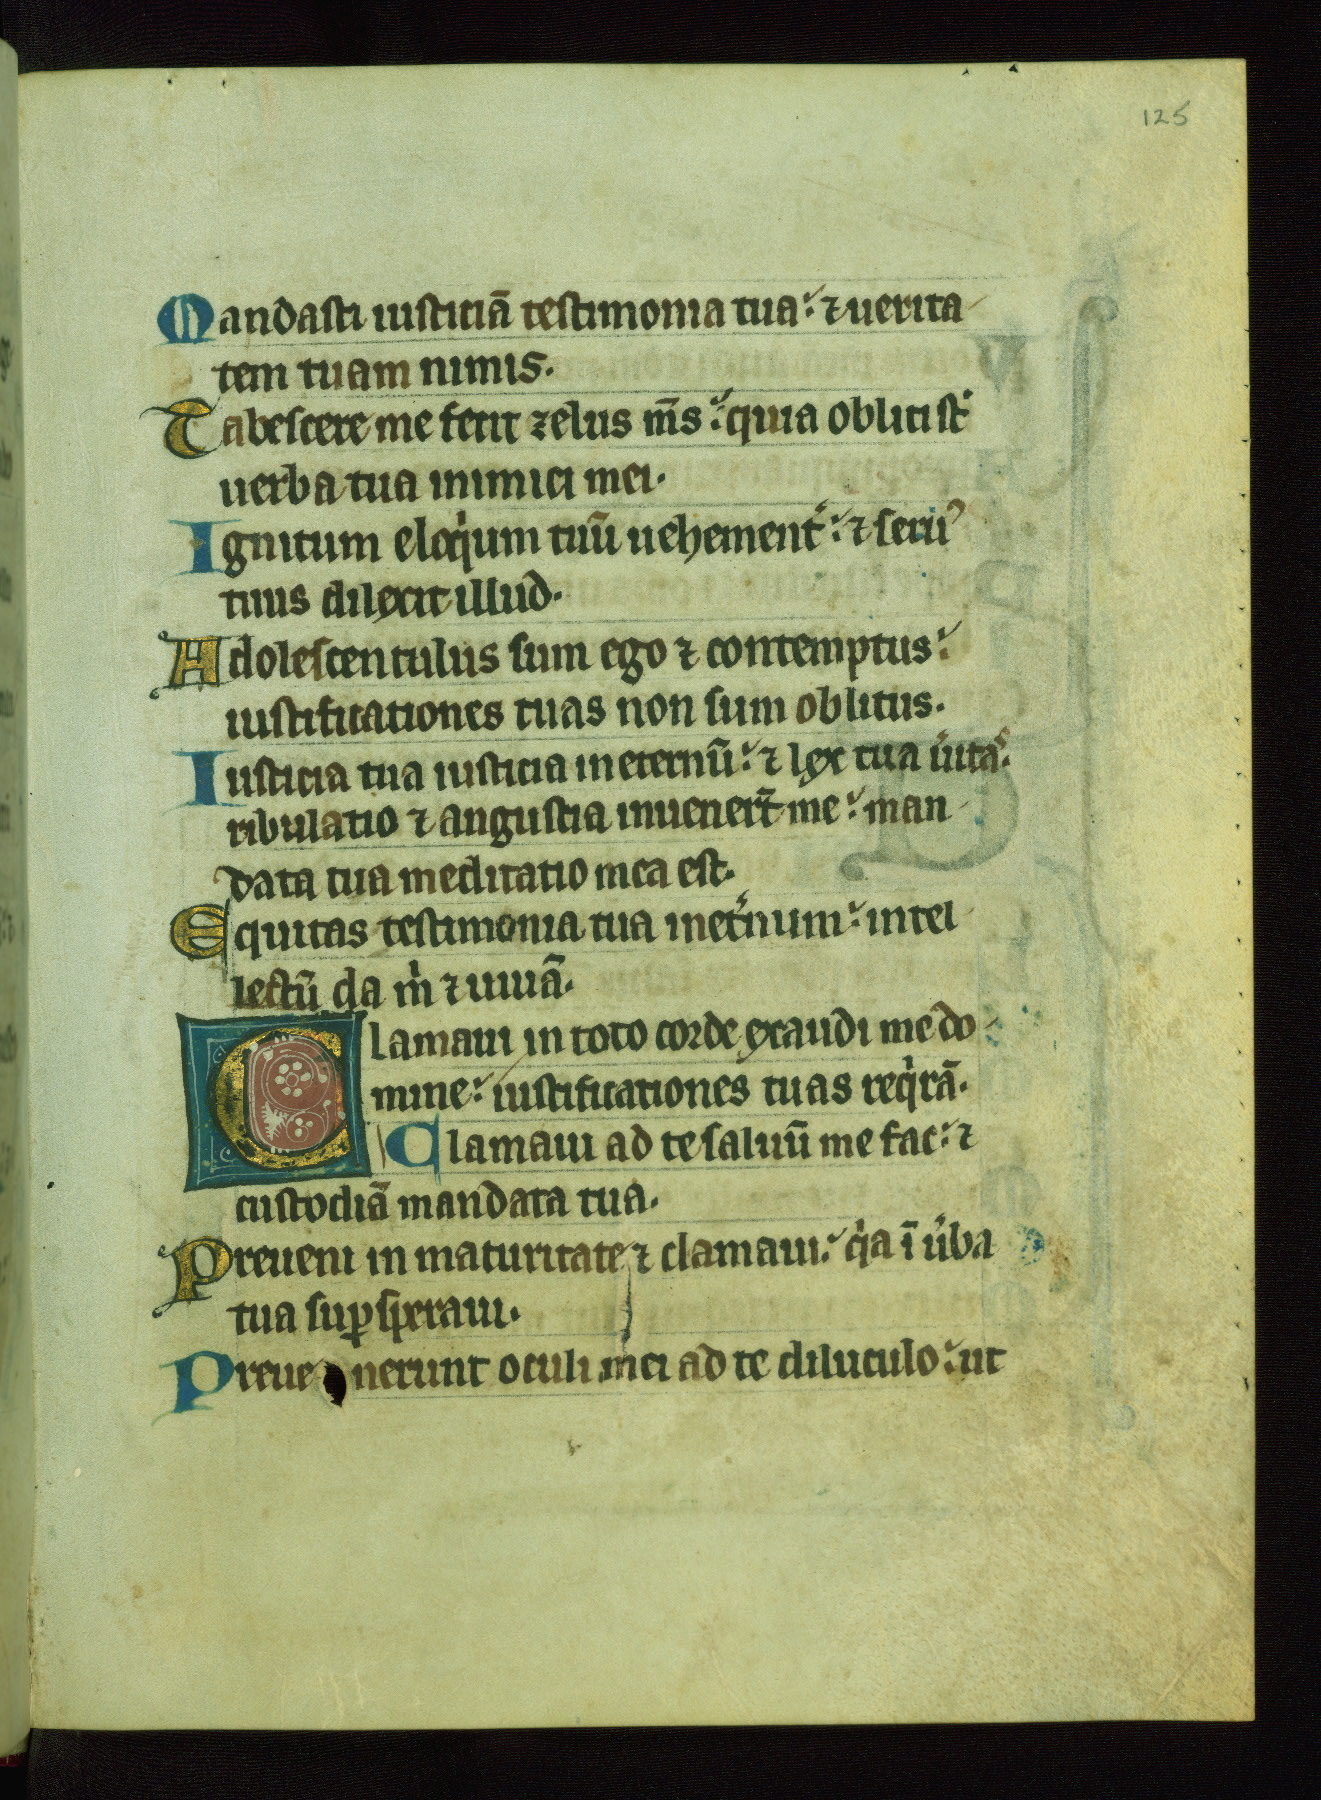 125
Mandasti iusticiā testimonia tua: ⁊ uerita
tem tuam nimis.
Tabescere me fecit zelus m̄s: quia obliti st̄
uerba tua inimici mei.
Ignitum eloq̍um tuū uehement̉: ⁊ seruꝰ
tuus dilexit illud.
Adolescentulus sum ego ⁊ contemptus:
iustificationes tuas non sum oblitus.
Iusticia tua iusticia in eternū: ⁊ lex tua u̍itas.
ribulatio ⁊ angustia inuenert̄ me: man
data tua meditatio mea est.
Equitas testimonia tua in et̉num: intel
lectū da m̍ ⁊ uiuā.
Clamaui in toto corde exaudi me do
mine: iustificationes tuas req̍rā.
Clamaui ad te saluū me fac: ⁊
custodiā mandata tua.
Preueni in maturitate ⁊ clamaui: q̍a ī u̍ba
tua suꝑsperaui.
Preuenerunt oculi mei ad te diluculo: ut